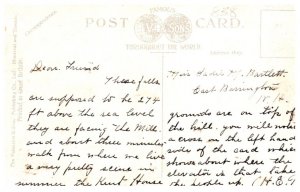 FAMOUS
POST CARD
THROUGHOUT THE WORLD.
Dear Friend
These falls
are supposed to be 274
ft above the sea level
they are facing the Mill
and about three minutes
walk from where we live
a very pretty scene in
summer the Kent House
Bartlett
East Barrington
N.H.
grounds are on top of
the hill. you will notice
a cross on the left hand
side of the card which
shows about where the
elevator is that takes
the people up.